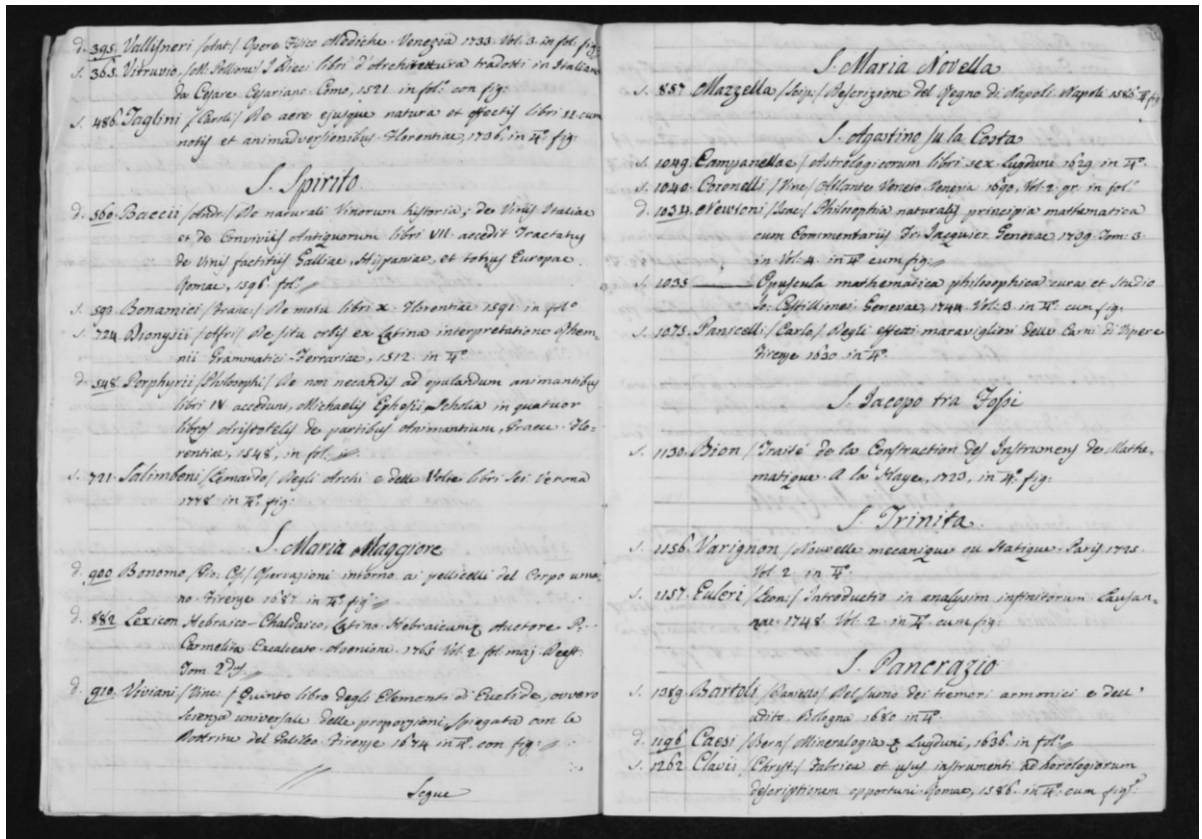 d. 395. Vallisneri /Ant:/ Opere Fisico Mediche. Venezia 1733. Vol. 3. in fol. fig:
s. 363. Vitruvio, /M. Pollione/ I Dieci libri d'Architettura tradotti in Italiano
da Cesare Cesariano. Como, 1521. in fol.º con fig:
s. 486. Taglini /Carol:/ De aere ejusque natura et effectis libri II. cum
notis et animadversionibus. Florentiae, 1736. in 4.º fig:
S. Spirito.
d. 560. Baccii /Andr:/ De naturali Vinorum historia, de Vinis Italiae
et de Conviviis Antiquorum libri VII. accedit Tractatus
de Vinis factitiis Galliae, Hispaniae, et totius Europae.
Romae, 1596. fol.º
s. 593. Bonamici /Franc:/ De motu libri X. Florentiae 1591. in fol.º
s. 724. Dionysii /Afri/ De situ orbis ex Latina interpretatione Rhem-
nii Grammatici. Ferrariae, 1512. in 4.º
d. 548. Porphyrii /Philosophi/ De non necandis ad epulandum animantibus
libri IV. accedunt, Michaelis Ephesii, Scholia in quatuor
libros Aristotelis de partibus Animantium, Graece. Flo-
rentiae, 1548, in fol.º
s. 721. Salimbeni /Leonardo/ Degli Archi e delle Volte libri sei. Verona
1778. in 4.º fig:
S. Maria Maggiore
d. 900. Bonomo /Gio. Cos:/ Osservazioni intorno ai pellicelli del Corpo uma-
no. Firenze 1687. in 4.º fig:
d. 882. Lexicon Hebraico-Chaldaico, Latino-Hebraicum auctore P.
Carmelita Excalceato. Avenione. 1765. Vol. 2. fol. maj.
Tom. 2.
d. 910. Viviani /Vinc:/ Quinto libro degli Elementi di Euclide, ovvero
Scienza universale delle proporzioni, spiegata con la
Dottrina del Galileo. Firenze 1674 in 4.º con fig:
Segue
S. Maria Novella
s. 857. Mazzella /Scip:/ Descrizione del Regno di Napoli. Napoli 1586. 4.º fig
S. Agostino su la Costa
s. 1049. Campanellae /Astrologicorum libri sex. Lugduni 1629. in 4.º
s. 1040. Coronelli /Vinc:/ Atlante Veneto. Venezia 1690, Vol. 2. gr. in fol.º
d. 1034. Newtoni /Isac:/ Philosophia naturalis principia mathematica
cum Commentariis Fr: Jacquier. Genevae, 1739. Tom: 3.
in Vol. 4. in 4.º cum fig:
s. 1035. ——— Opuscula mathematica philosophica cura et studio
Jo: Castillionei. Genevae, 1744. Vol. 3. in 4.º cum fig.
s. 1073. Paniscelli /Carlo/ Degli effetti maravigliosi delle Carni di Vipere
Firenze 1630. in 4.º
S. Iacopo tra Fossi
s. 1130. Bion /Traité de la Construction des Instrumens de Mathe-
matique. A la Haye, 1723, in 4.º fig:
S. Trinita
s. 1156. Varignon /Nouvelle mecanique ou Statique. Paris 1725.
Vol. 2. in 4.º
s. 1157. Euleri /Leon:/ Introductio in analysim infinitorum Lausan-
nae. 1748. Vol. 2. in 4.º cum fig:
S. Pancrazio
s. 1389. Bartoli /Daniello/ Del suono dei tremori armonici e dell'
udito. Bologna 1680. in 4.º
d. 1196. Caesi /Bern/ Mineralogia. Lugduni, 1636. in fol.º
s. 1262. Clavii /Christ:/ Fabrica et usus instrumenti ad horologiorum
descriptionem opportuni. Romae, 1586. in 4.º cum fig.